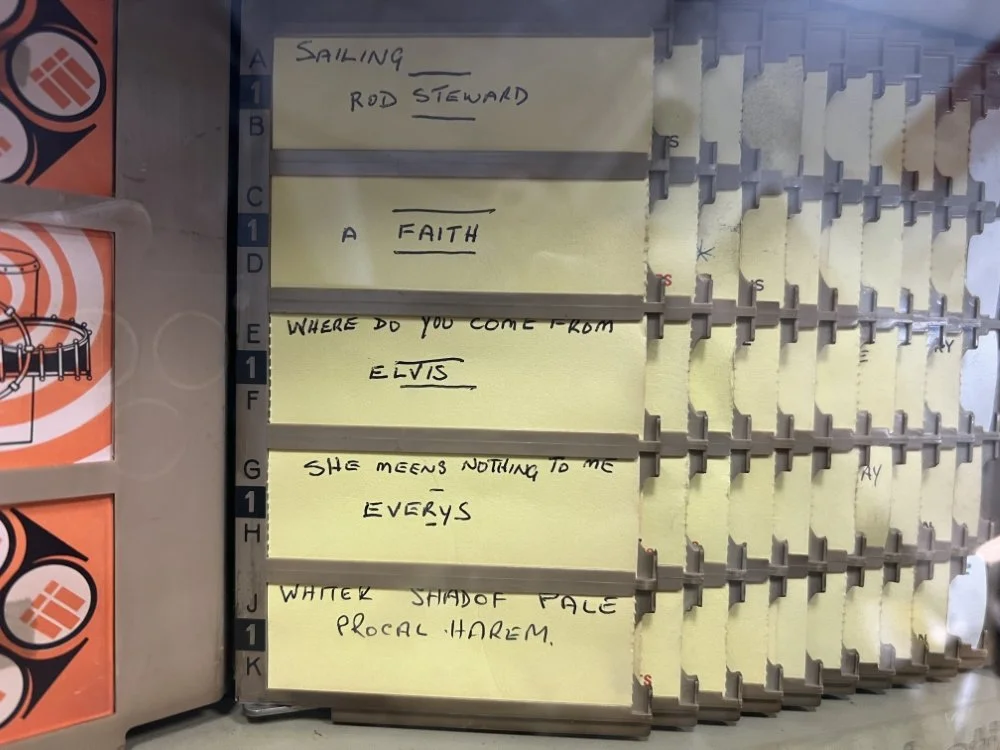 A
1
B
SAILING
ROD STEWARD
C
1
D
A FAITH
E
1
F
WHERE DO YOU COME FROM
ELVIS
G
1
H
SHE MEENS NOTHING TO ME
EVERYS
J
1
K
WHITER SHADOF PALE
PROCAL HAREM.
S
S
*
S
AY
AY
S